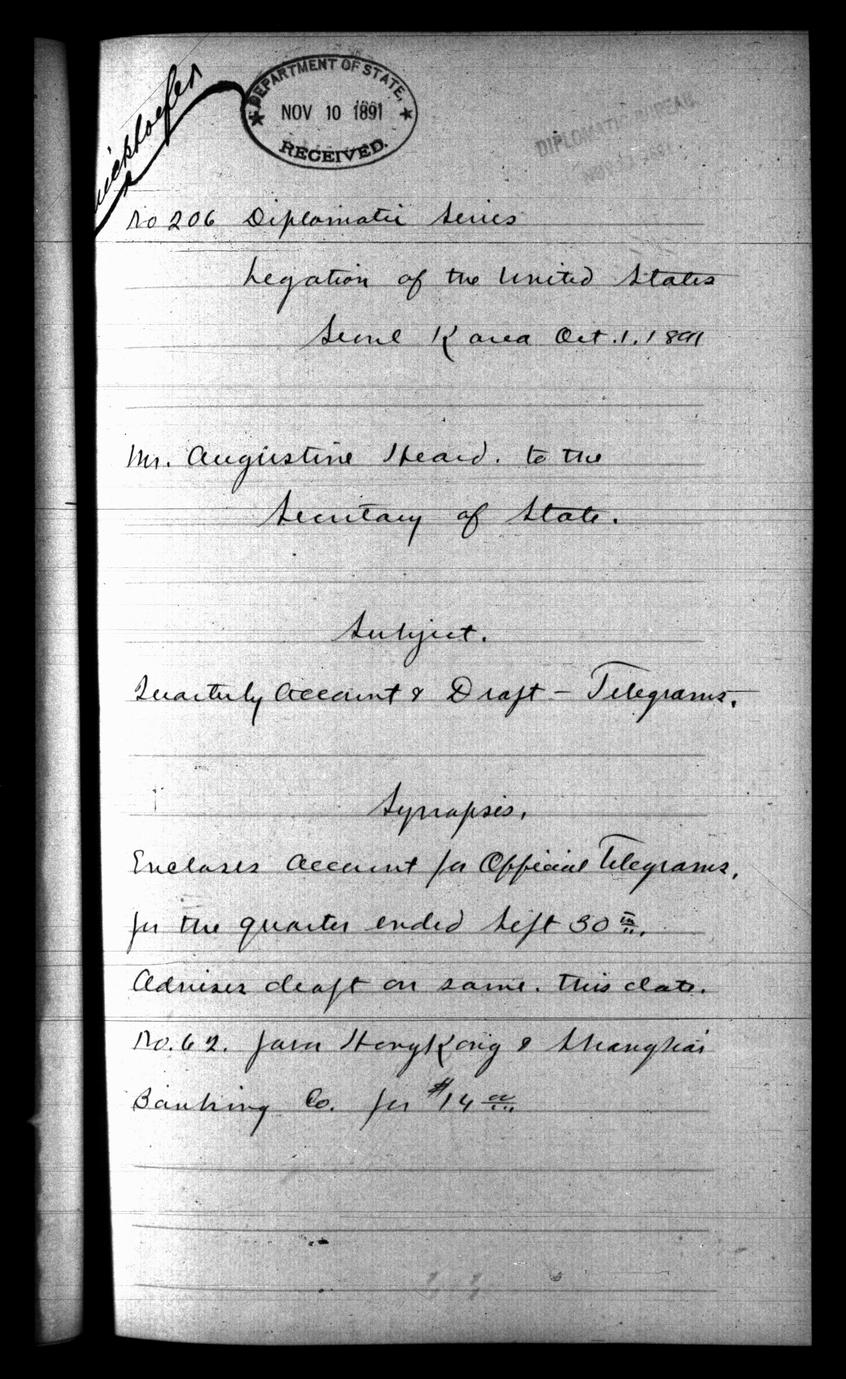 DEPARTMENT OF STATE,
NOV 10 1891
RECEIVED.
DIPLOMATIC BUREAU
No 206 Diplomatic Series
Legation of the United States
Seoul Korea Oct. 1. 1891
Mr. Augustine Heard. to the
Secretary of State.
Subject.
Quarterly Account & Draft - Telegrams.
Synopsis.
Encloses Account for Official Telegrams.
for the quarter ended Sept 30th.
Advises draft on same. this date.
No. 62. favor HongKong & Shanghai
Banking Co. for $14